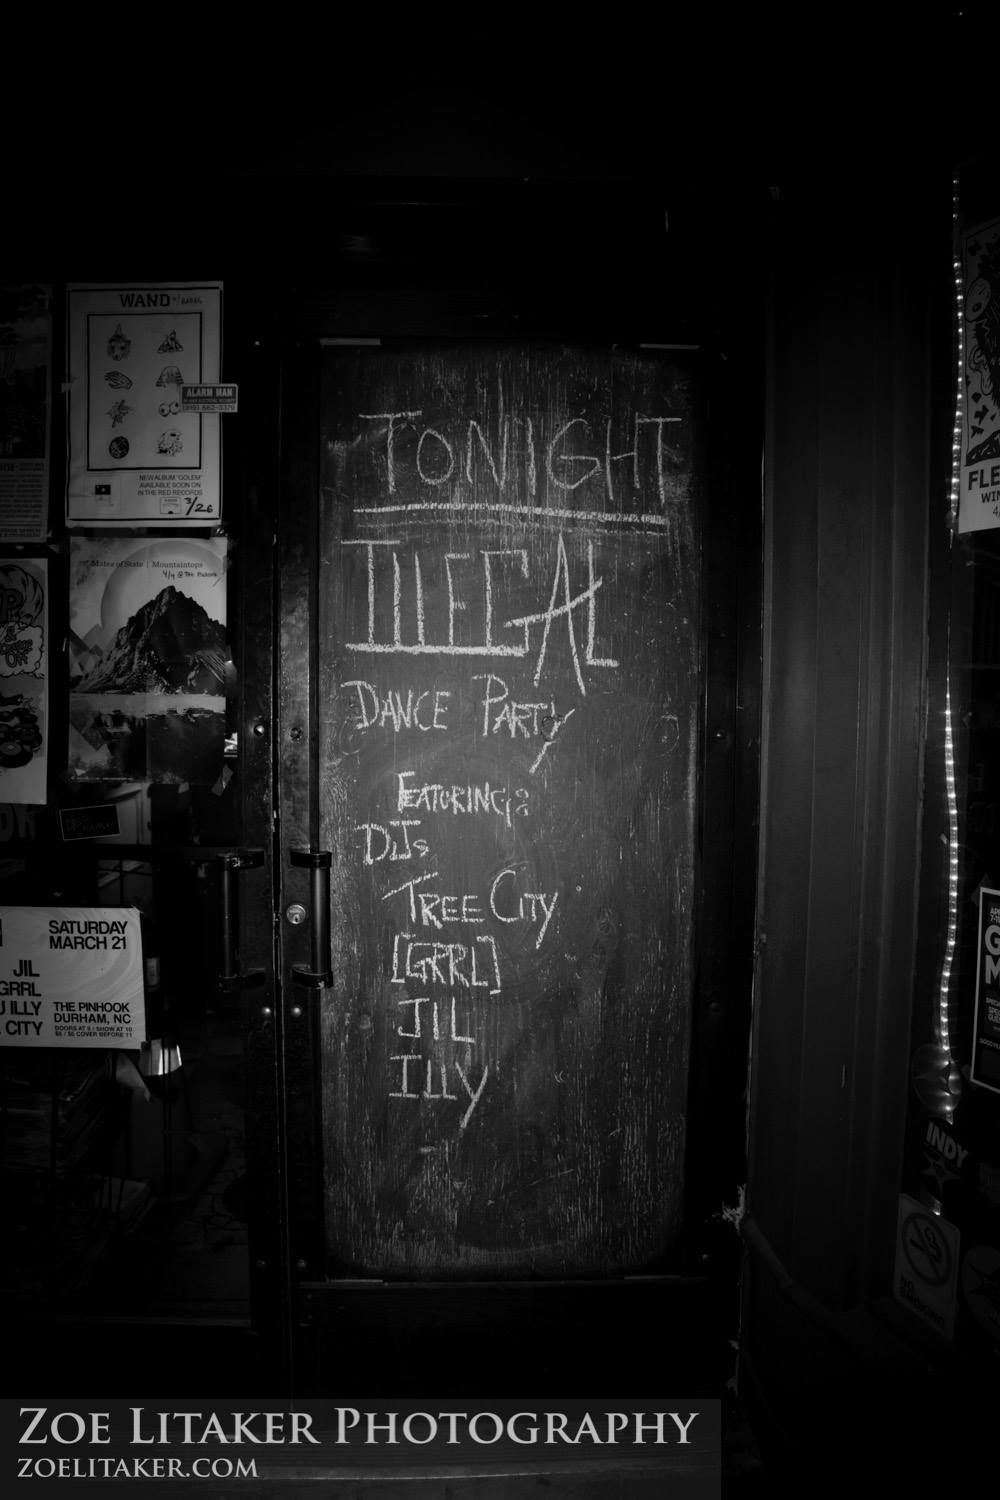 WAND
ALARM MAN
(919) 682-3379
NEW ALBUM "GOLEM"
AVAILABLE SOON ON
IN THE RED RECORDS
3/26
Mates of State | Mountaintops
4/4 @ The Pinhook
TONIGHT
ILLEGAL
DANCE PARTY
FEATURING:
DJs
TREE CITY
[GRRL]
JIL
ILLY
SATURDAY
MARCH 21
JIL
GRRL
ILLY
CITY
THE PINHOOK
DURHAM, NC
DOORS AT 9 / SHOW AT 10
$5 COVER BEFORE 11
FLE
WIN
INDY
NO
SMOKING
ZOE LITAKER PHOTOGRAPHY
ZOELITAKER.COM